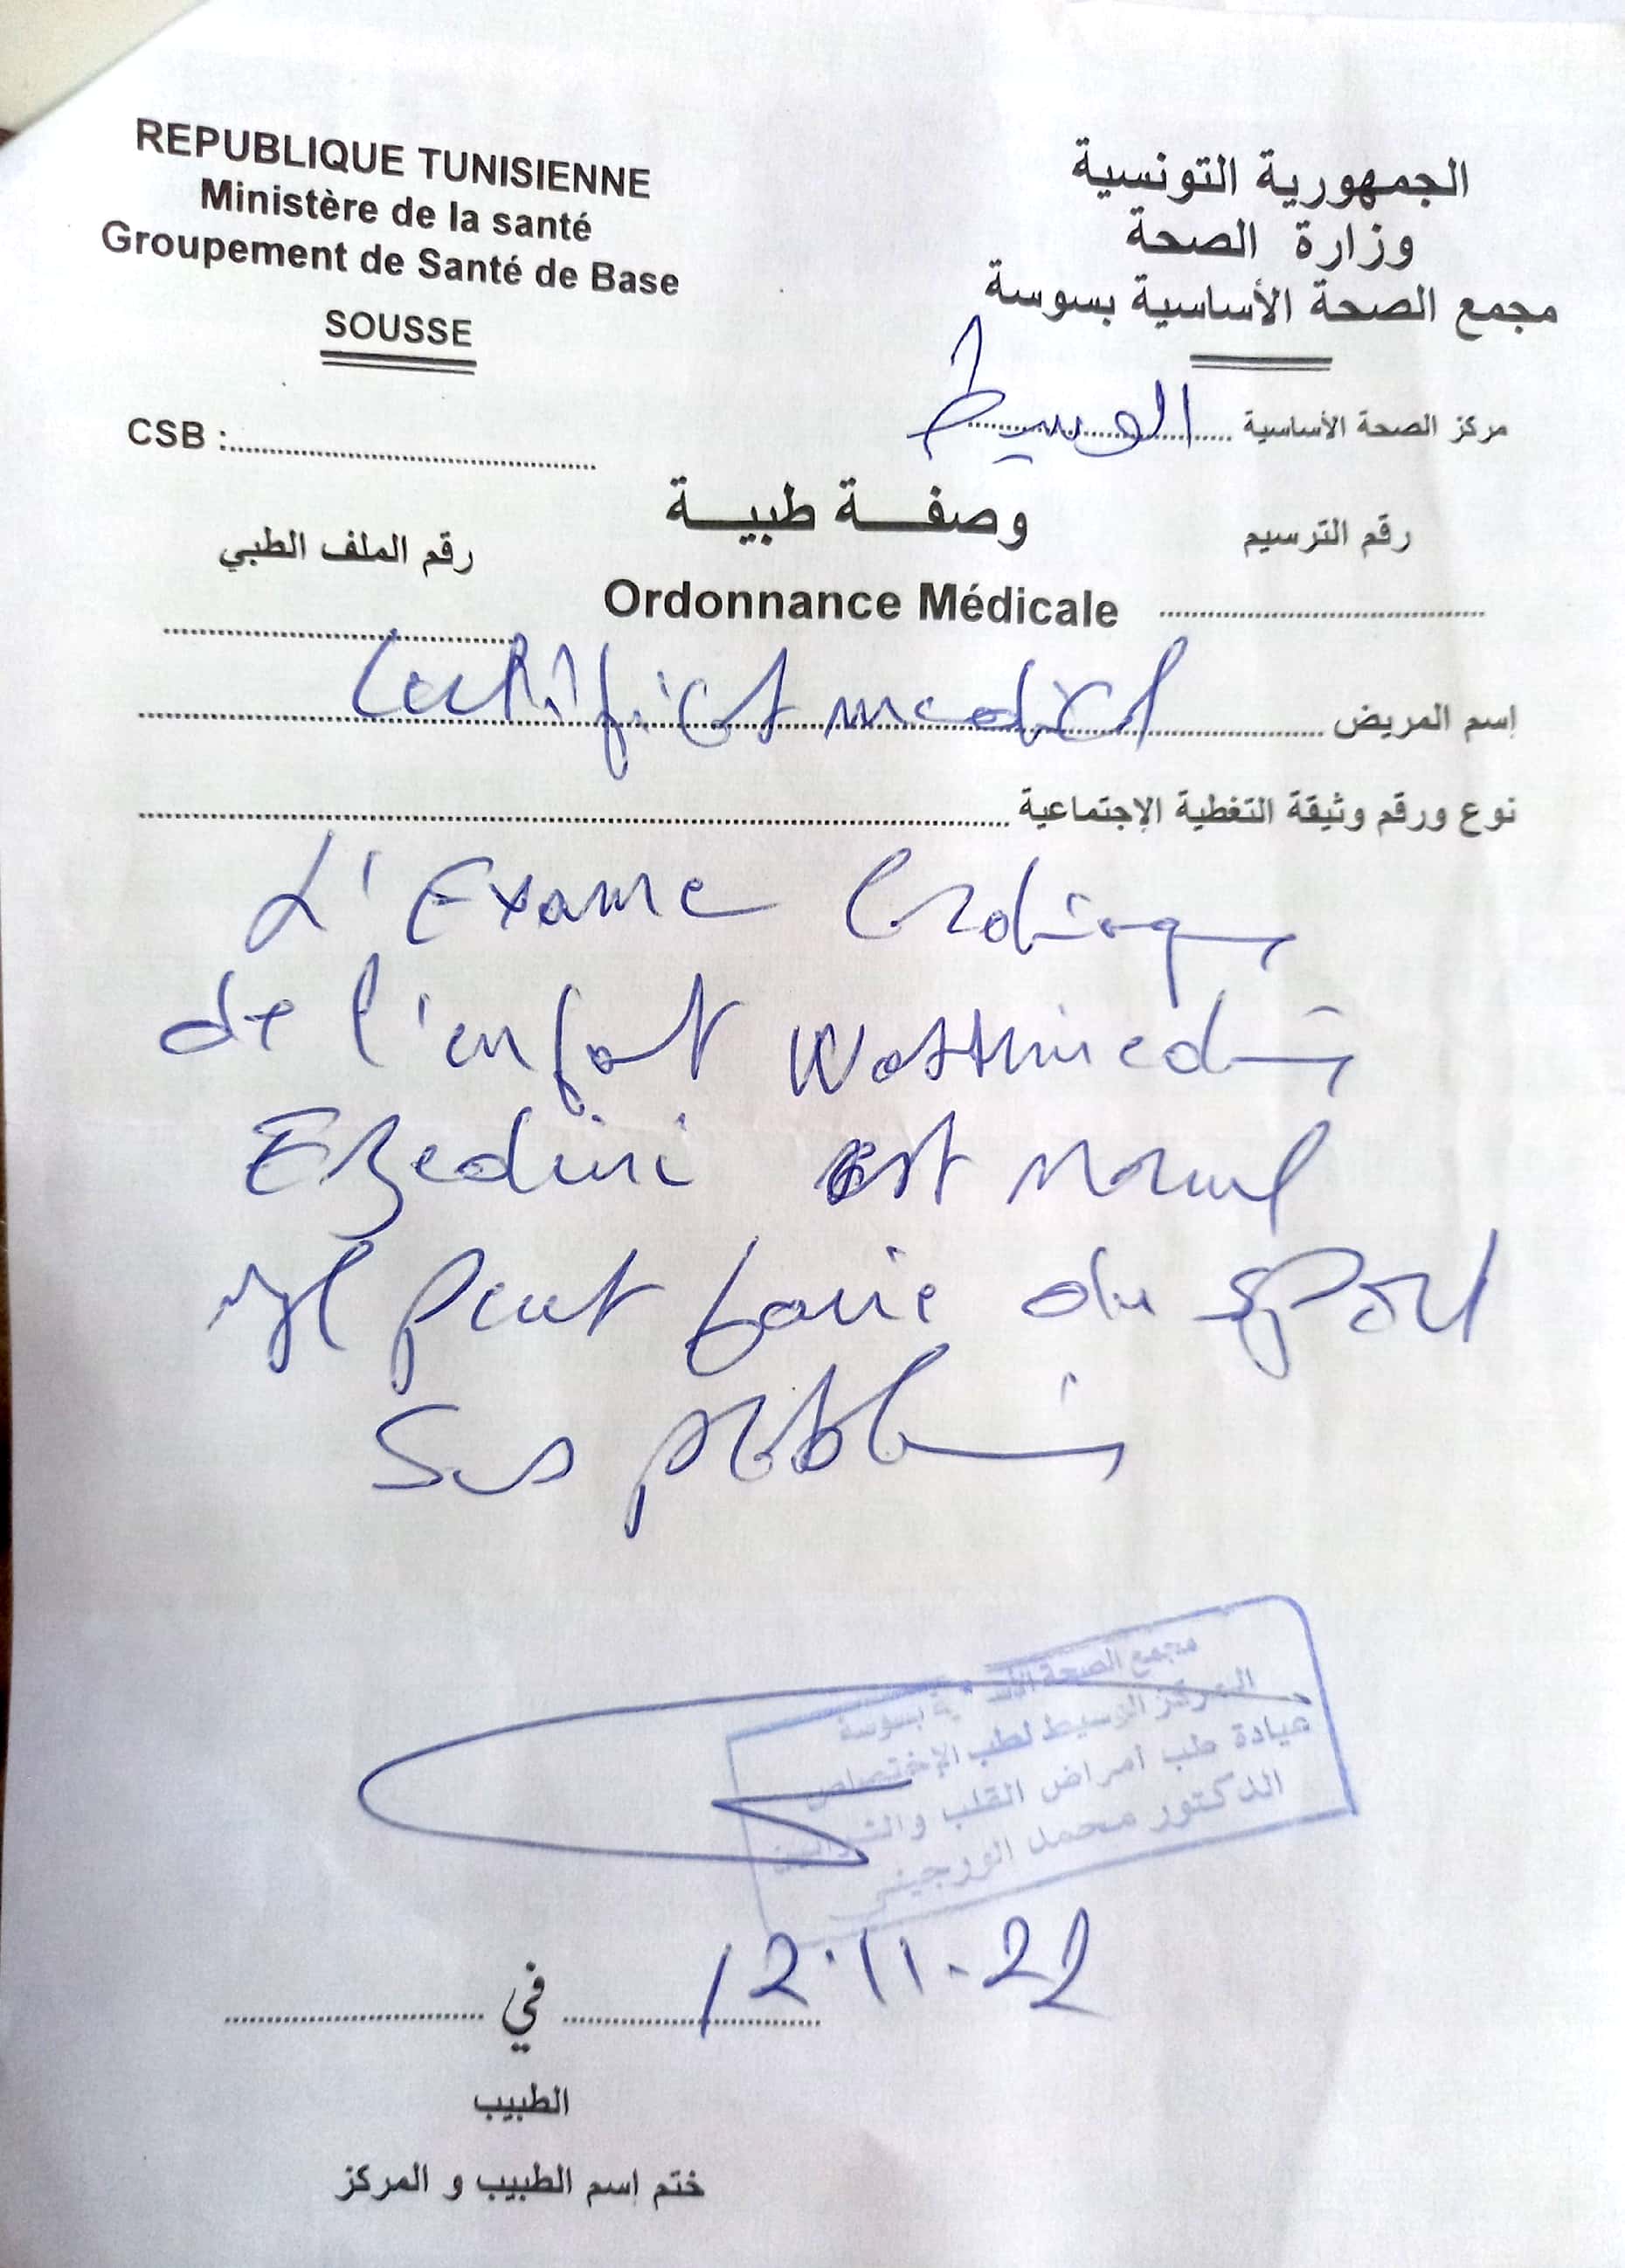 REPUBLIQUE TUNISIENNE
Ministère de la santé
Groupement de Santé de Base
SOUSSE
الجمهورية التونسية
وزارة الصحة
مجمع الصحة الأساسية بسوسة
مركز الصحة الأساسية الوسيط
CSB :
وصفة طبية
رقم الترسيم
رقم الملف الطبي
Ordonnance Médicale
إسم المريض
Certificat medical
نوع ورقم وثيقة التغطية الإجتماعية
L'Examen Cardiaque
de l'enfant
Ezedini est normal
il peut faire du sport
sans problème
مجمع الصحة الأساسية بسوسة
المركز الوسيط لطب الإختصاص
عيادة طب أمراض القلب والشرايين
الدكتور محمد الورجيني
في 12.11.22
الطبيب
ختم إسم الطبيب و المركز